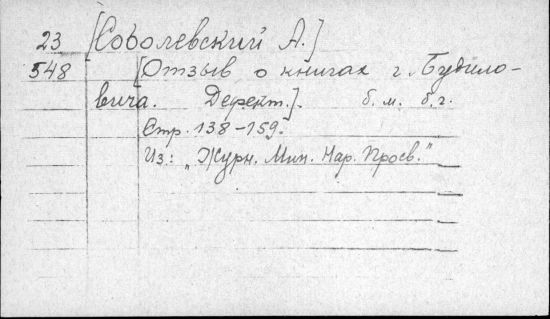 23 [Соболевский А.]
548 [Отзыв о книгах г. Будило-
вича. Дефект.]. б. м. б. г.
Стр. 138-159.
Из: „Журн. Мин. Нар. Просв."